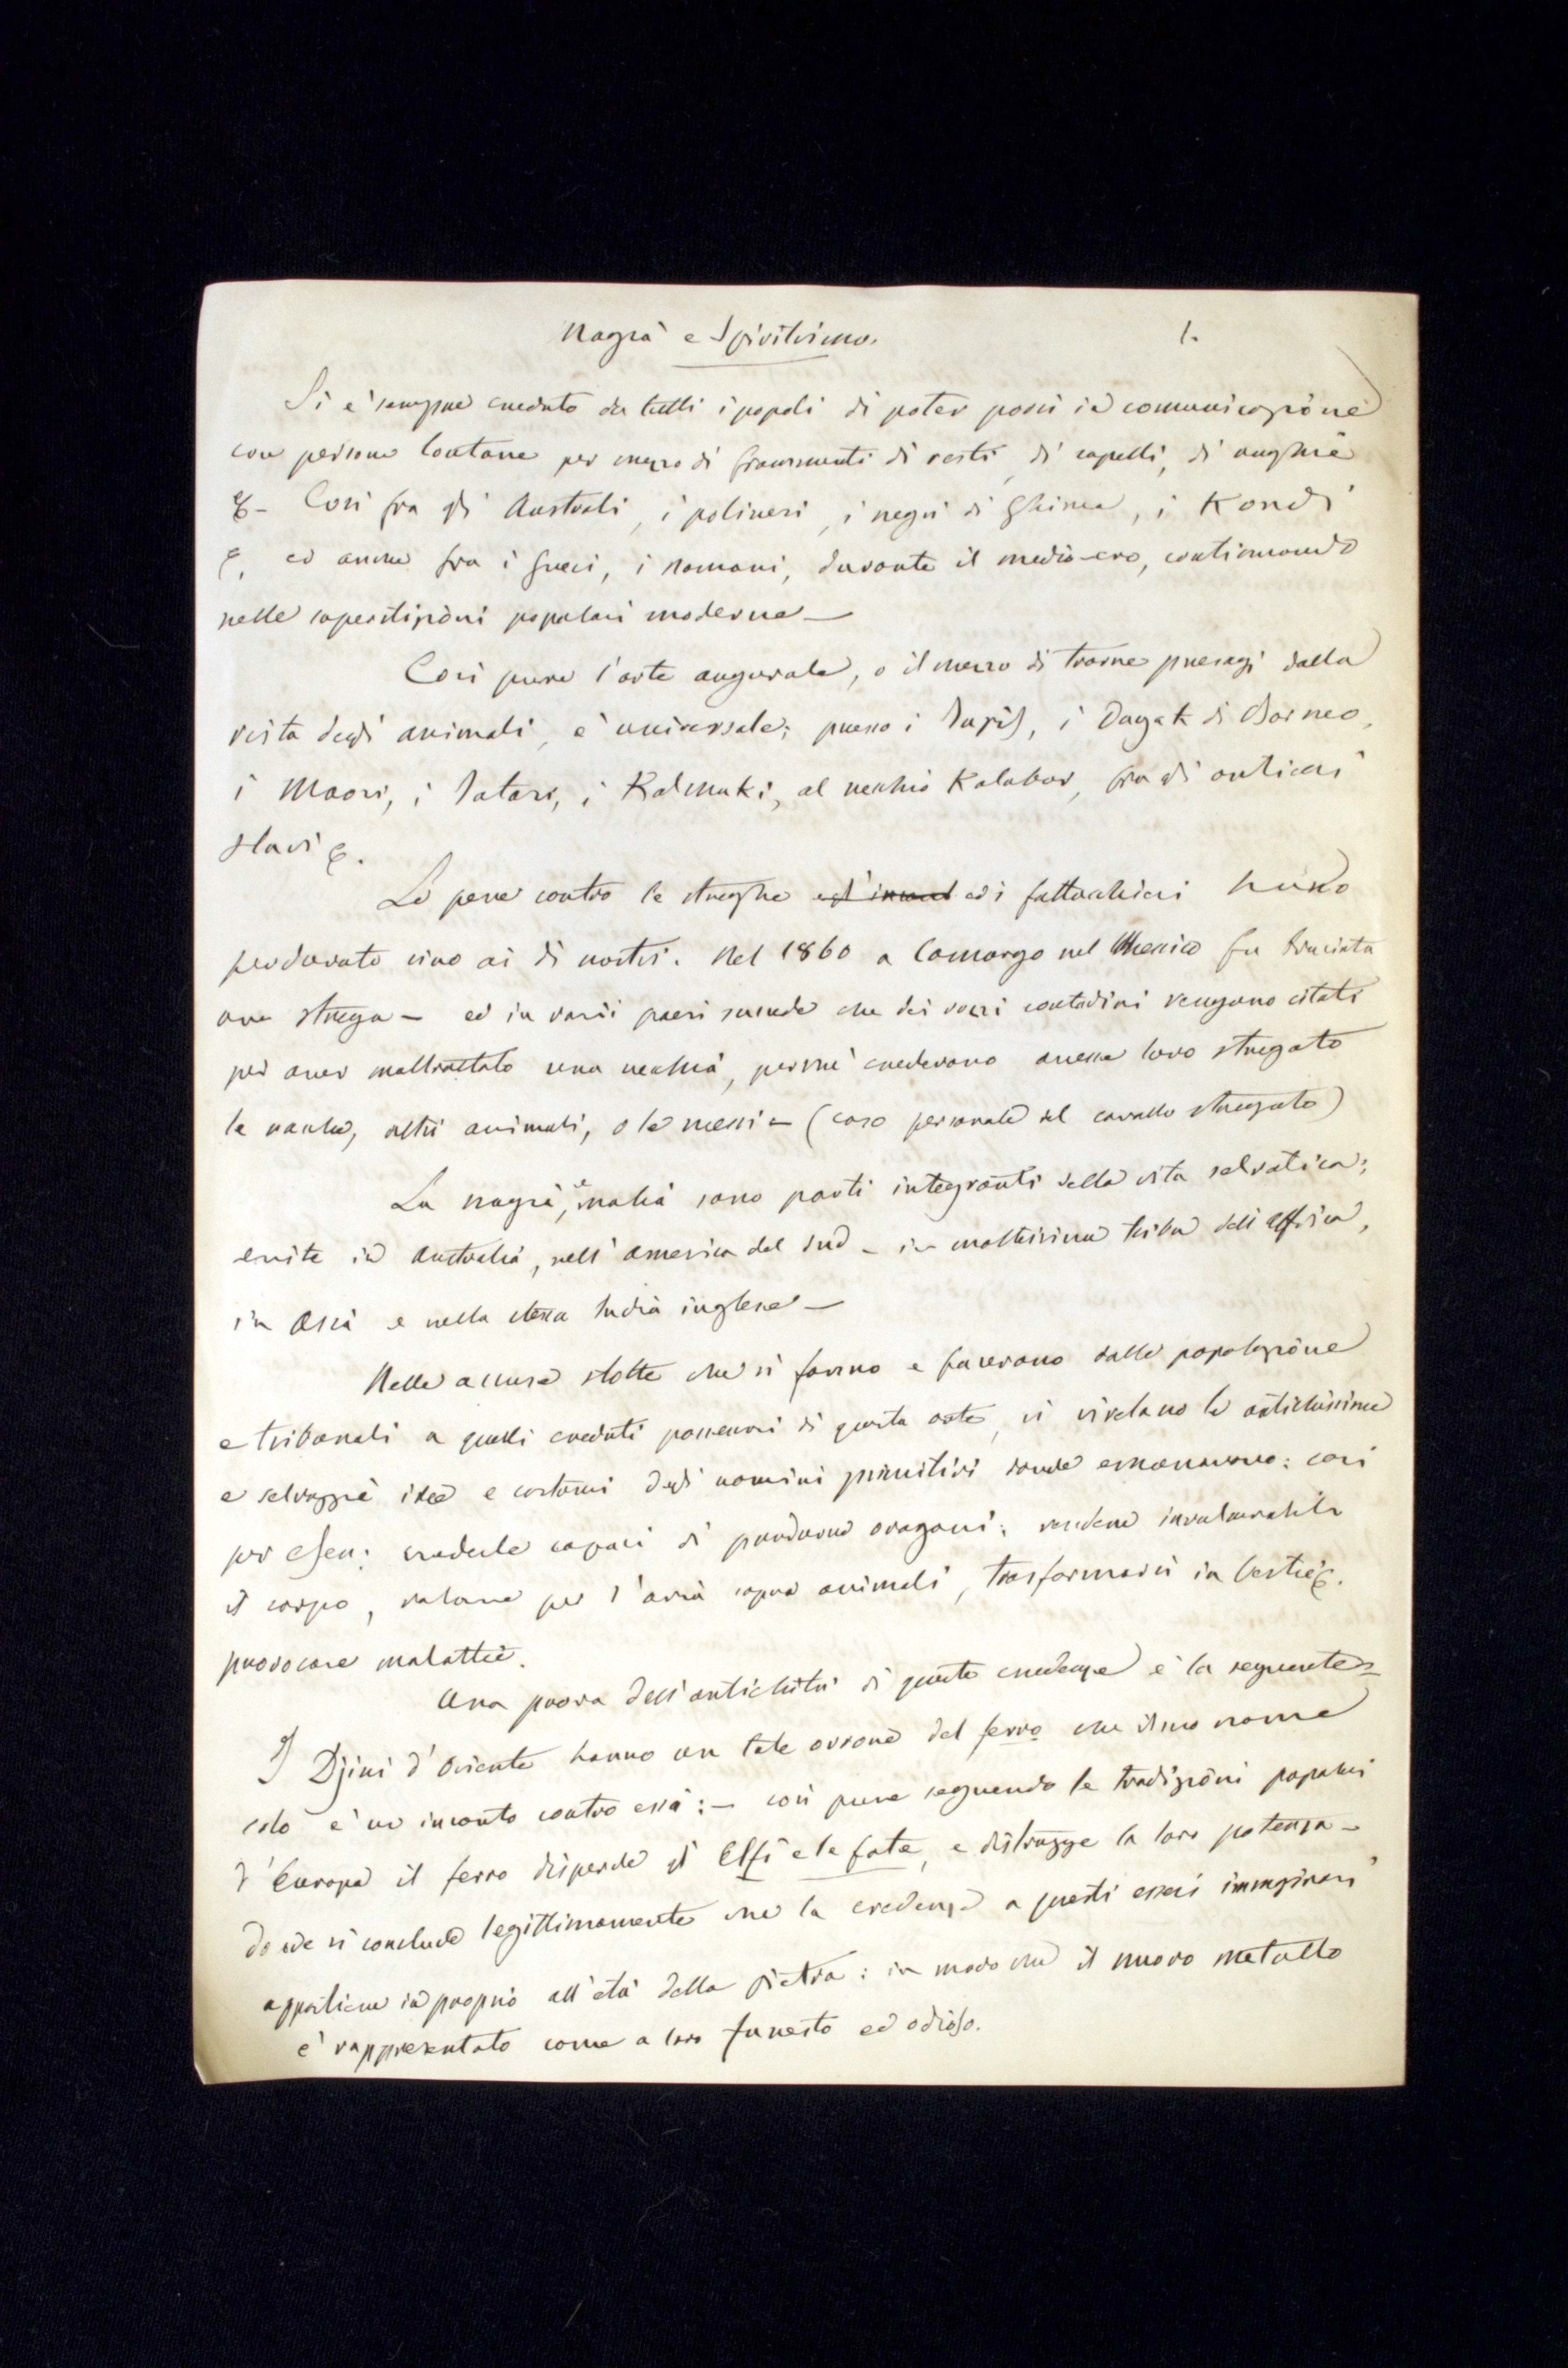 Magia e Spiritismo. 1.
Si è sempre creduto da tutti i popoli di poter porsi in comunicazione
con persone lontane per mezzo di frammenti di vesti, di capelli, di unghie
&- Così fra gli Australi, i polinesi, i negri di Ghinea, i Kondi
&, ed anche fra i Greci, i Romani, durante il medio-evo, continuando
nelle superstizioni popolari moderne —
Così pure l'arte augurale, o il mezzo di trarne presagi dalla
vista degli animali, è universale; presso i Tupis, i Dayak di Borneo,
i Maori, i Tatari, i Kalmuki, al vecchio Kalabar, fra gli antichi
slavi &.
Le pene contro le streghe ed i fattucchieri hanno
perdurato sino ai dì nostri. Nel 1860 a Camargo nel Messico fu bruciata
una strega — ed in varii paesi succede che dei rozzi contadini vengano citati
per aver maltrattato una vecchia, perchè credevano avesse loro stregato
le vacche, altri animali, o le messi — (caso personale del cavallo stregato)
La magia, e malia sono parti integranti della vita selvatica;
esiste in Australia, nell'America del Sud — in moltissime tribù dell'Affrica,
in Asia e nella stessa India inglese —
Nelle accuse stolte che si fanno e facevano dalle popolazione
e tribunali a quelli creduti possessori di questa arte, si rivelano le antichissime
e selvaggie idee e costumi degli uomini primitivi donde emanavano: così
per esem: crederle capaci di produrre oragani; rendere invulnerabile
il corpo, volare per l'aria sopra animali, trasformarsi in bestie &.
provocare malattie.
Una prova dell'antichità di queste credenze è la seguente =
I Djini d'Oriente hanno un tale orrore del ferro che il suo nome
solo è un incanto contro essi: — così pure seguendo le tradizioni popolari
d'Europa il ferro disperde gli Elfi e le fate, e distrugge la loro potenza —
donde si conclude legittimamente che la credenza a questi esseri immaginari
appartiene in proprio all'età della pietra: in modo che il nuovo metallo
è rappresentato come a loro funesto ed odioso.